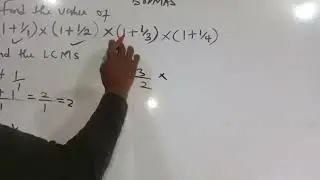 Find the value of
1+1/1) × (1+1/2) × (1+1/3) × (1+1/4)
nd the LCMs
+ 1/1
3/2 ×
+ 1/1 = 2/1 = 2